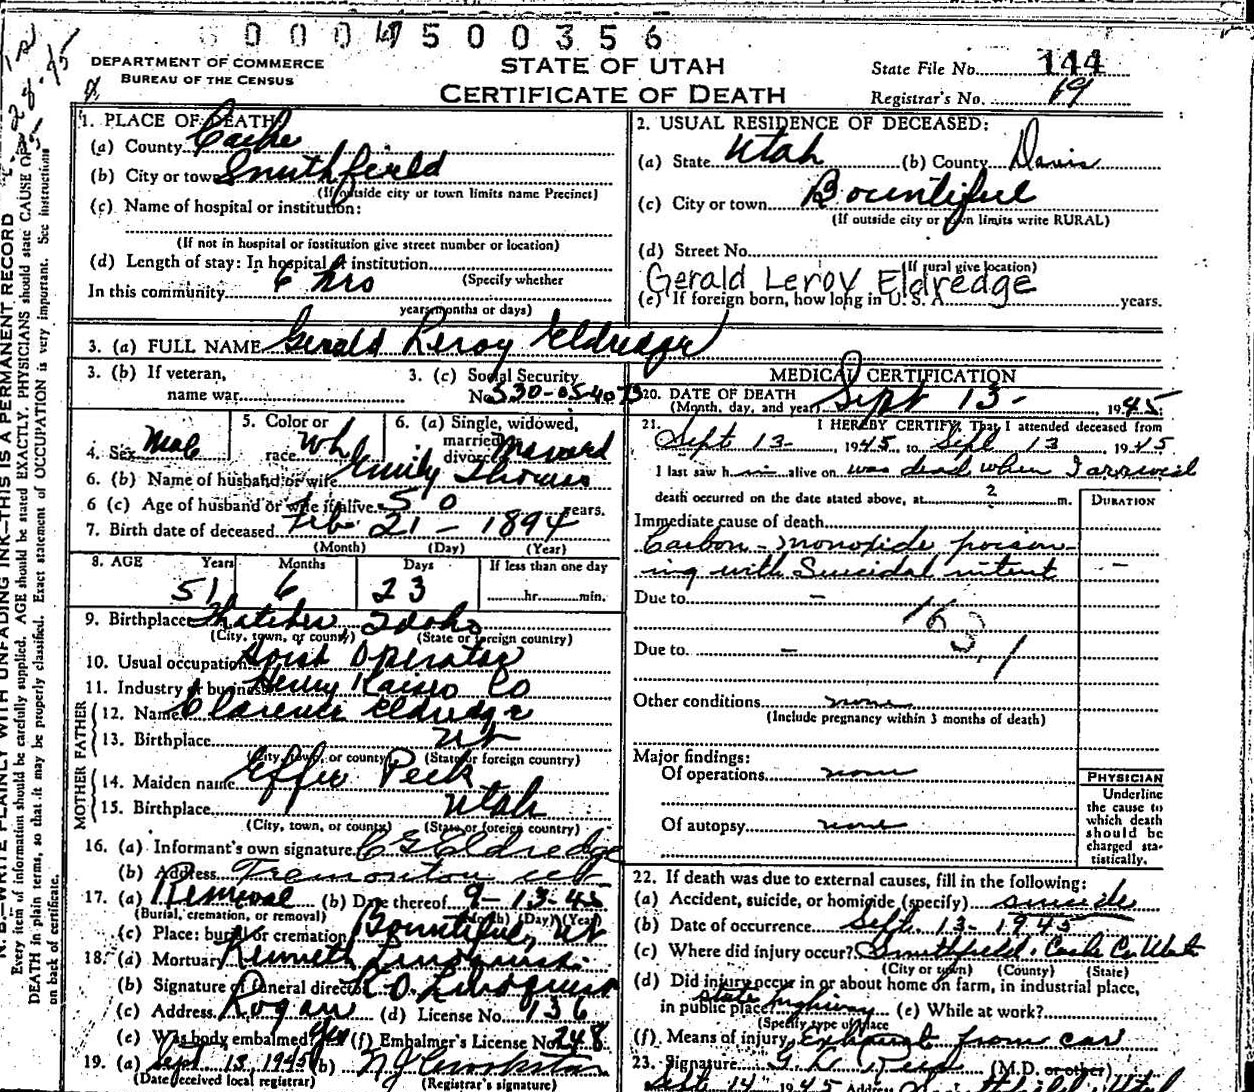 0 0 0 4 5 0 0 3 5 6
DEPARTMENT OF COMMERCE
BUREAU OF THE CENSUS
STATE OF UTAH
CERTIFICATE OF DEATH
State File No. 144
Registrar's No. 19
N. B.—WRITE PLAINLY WITH UNFADING INK—THIS IS A PERMANENT RECORD
Every item of information should be carefully supplied. AGE should be stated EXACTLY. PHYSICIANS should state CAUSE OF
DEATH in plain terms, so that it may be properly classified. Exact statement of OCCUPATION is very important. See instructions
on back of certificate.
1. PLACE OF DEATH:
(a) County Cache
(b) City or town Smithfield
(If outside city or town limits name Precinct)
(c) Name of hospital or institution:
(If not in hospital or institution give street number or location)
(d) Length of stay: In hospital or institution
(Specify whether
In this community 6 hrs
years, months or days)
2. USUAL RESIDENCE OF DECEASED:
(a) State Utah (b) County Davis
(c) City or town Bountiful
(If outside city or town limits write RURAL)
(d) Street No.
(If rural give location)
Gerald Leroy Eldredge
(e) If foreign born, how long in U. S. A. years.
3. (a) FULL NAME Gerald Leroy Eldredge
3. (b) If veteran,
name war
3. (c) Social Security
No. 530-05-4073
4. Sex Male
5. Color or
race Wh
6. (a) Single, widowed,
married,
divorced Married
6. (b) Name of husband or wife Emily Thomas
6 (c) Age of husband or wife if alive 50 years.
7. Birth date of deceased Feb 21 - 1894
(Month) (Day) (Year)
8. AGE Years Months Days If less than one day
51 6 23 hr. min.
9. Birthplace Thatcher Idaho
(City, town, or county) (State or foreign country)
10. Usual occupation Operator
11. Industry or business Henry Kaiser Co
FATHER
12. Name Clarence Eldredge
13. Birthplace Ut
(City, town, or county) (State or foreign country)
MOTHER
14. Maiden name Effie Peck
15. Birthplace Utah
(City, town, or county) (State or foreign country)
16. (a) Informant's own signature C G Eldredge
(b) Address Tremonton Ut
17. (a) Removal (b) Date thereof 9-13-45
(Burial, cremation, or removal) (Month) (Day) (Year)
(c) Place: burial or cremation Bountiful, Ut
18. (a) Mortuary Kenneth Lindquist
(b) Signature of funeral director Lindquist
(c) Address Logan (d) License No. 136
(e) Was body embalmed? yes (f) Embalmer's License No. 248
19. (a) Sept. 13, 1945 (b)
(Date received local registrar) (Registrar's signature)
MEDICAL CERTIFICATION
20. DATE OF DEATH
(Month, day, and year) Sept 13- , 1945
21. I HEREBY CERTIFY, That I attended deceased from
Sept 13- , 1945 to Sept 13 1945
I last saw h im alive on was dead when I arrived
death occurred on the date stated above, at 2 m.
DURATION
Immediate cause of death
Carbon-monoxide poison-
ing with Suicidal intent
Due to -
163.1
Due to -
Other conditions none
(Include pregnancy within 3 months of death)
Major findings:
Of operations none
Of autopsy none
PHYSICIAN
Underline
the cause to
which death
should be
charged sta-
tistically.
22. If death was due to external causes, fill in the following:
(a) Accident, suicide, or homicide (specify) suicide
(b) Date of occurrence Sept. 13- 1945
(c) Where did injury occur? Smithfield, Cache Co Utah
(City or town) (County) (State)
(d) Did injury occur in or about home on farm, in industrial place,
in public place? state highway (e) While at work?
(Specify type of place
(f) Means of injury Exhaust from car
23. Signature (M.D. or other)
Sept 14 1945 Address Smithfield Utah